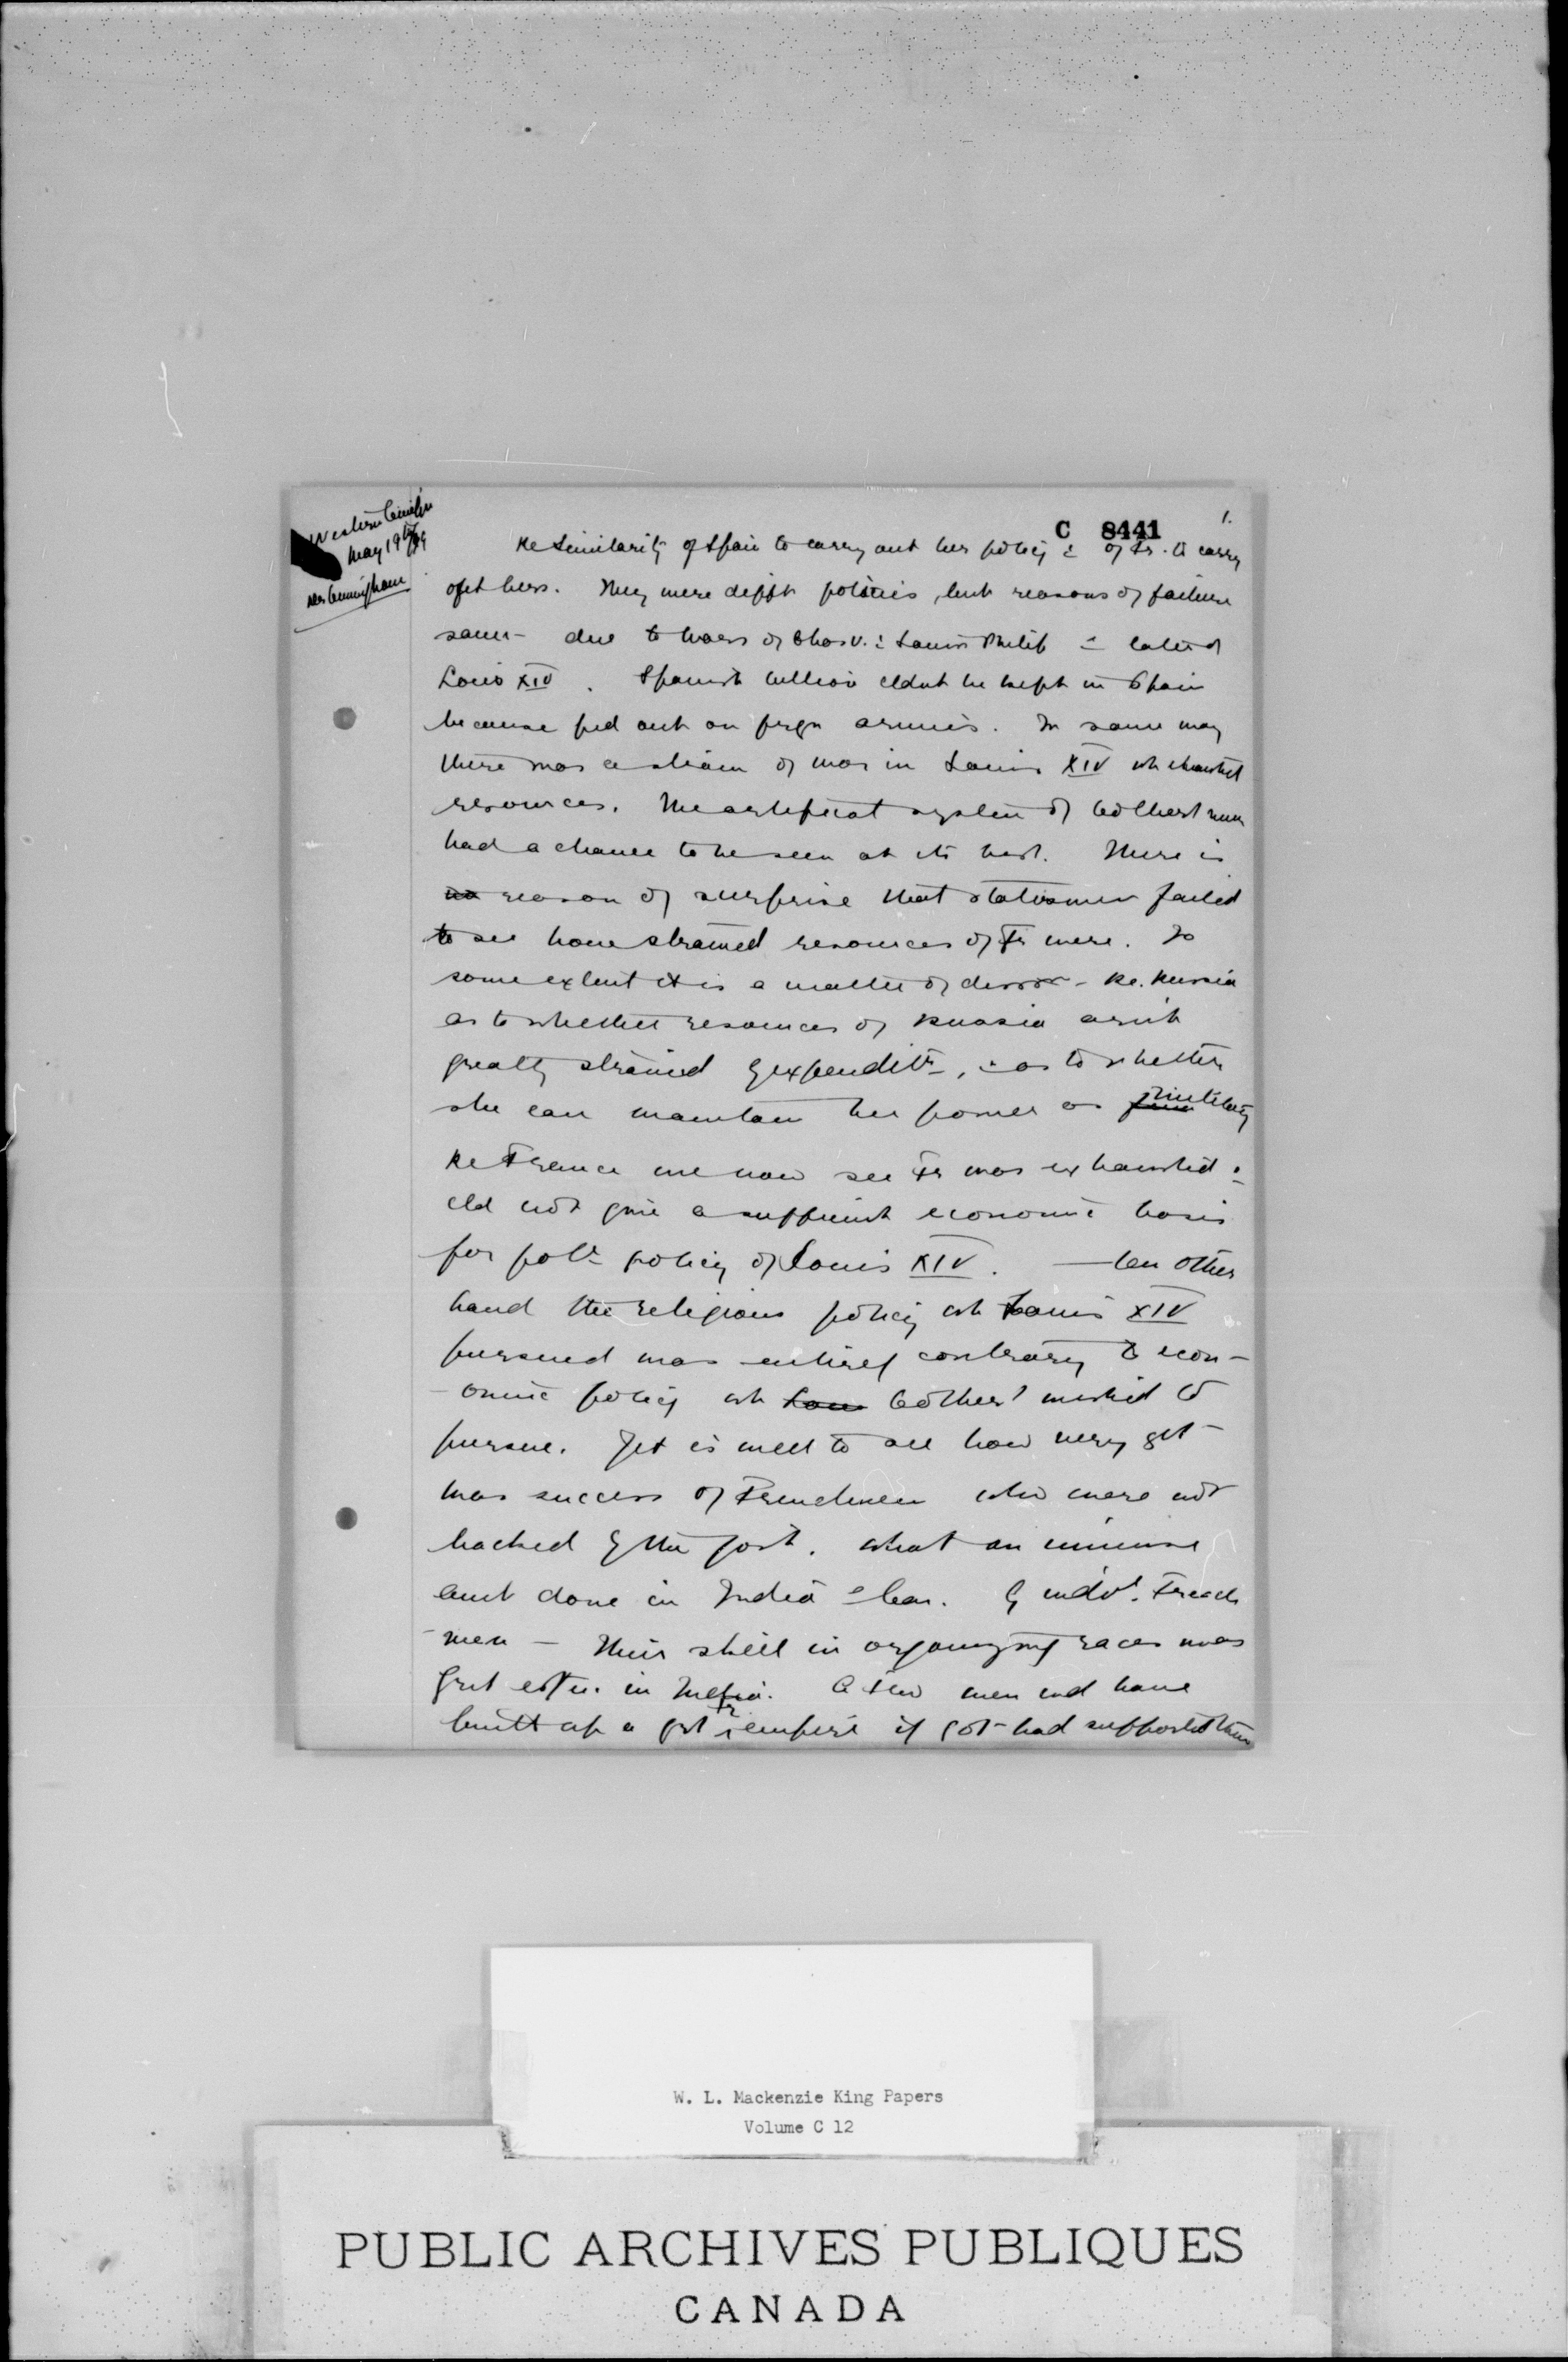 Western Civilzn
May 19th/99
Dr Cunningham
C 8441
1.
Re similarity of Spain to carry out her policy & of Fr. to carry
out hers. They were diffft policies, but reasons of failure
same - due to wars of Chas V. & Philip & later of
Louis XIV. Spanish bullion cldnt be kept in Spain
because pd out on forgn armies. In same way
there was a strain of war in Louis XIV wh exhausted
resources. The artificial system of Colbert never
had a chance to be seen at its best. There is
no reason of surprise that statesmen failed
to see how strained resources of Fr were. To
some extent it is a matter of - Re. Russia
as to whether resources of Russia arnt
greatly strained by expenditr, & as to whether
she can maintain her power as military
Re France we now see Fr was exhausted &
cld not give a sufficient economic basis
for polt policy of Louis XIV. — On other
hand the religious policy wh Louis XIV
pursued was entirely contrary to econ-
-omic policy wh Colbert wished to
pursue. Yet is well to see how very gt
was success of Frenchmen who were not
backed by the govt. What an immense
amt done in India & Can. by indvl. French
-men — Their skill in organizing races was
first in India. A few men wd have
built up a grt Fr empire if govt had supported them
W. L. Mackenzie King Papers
Volume C 12
PUBLIC ARCHIVES PUBLIQUES
CANADA